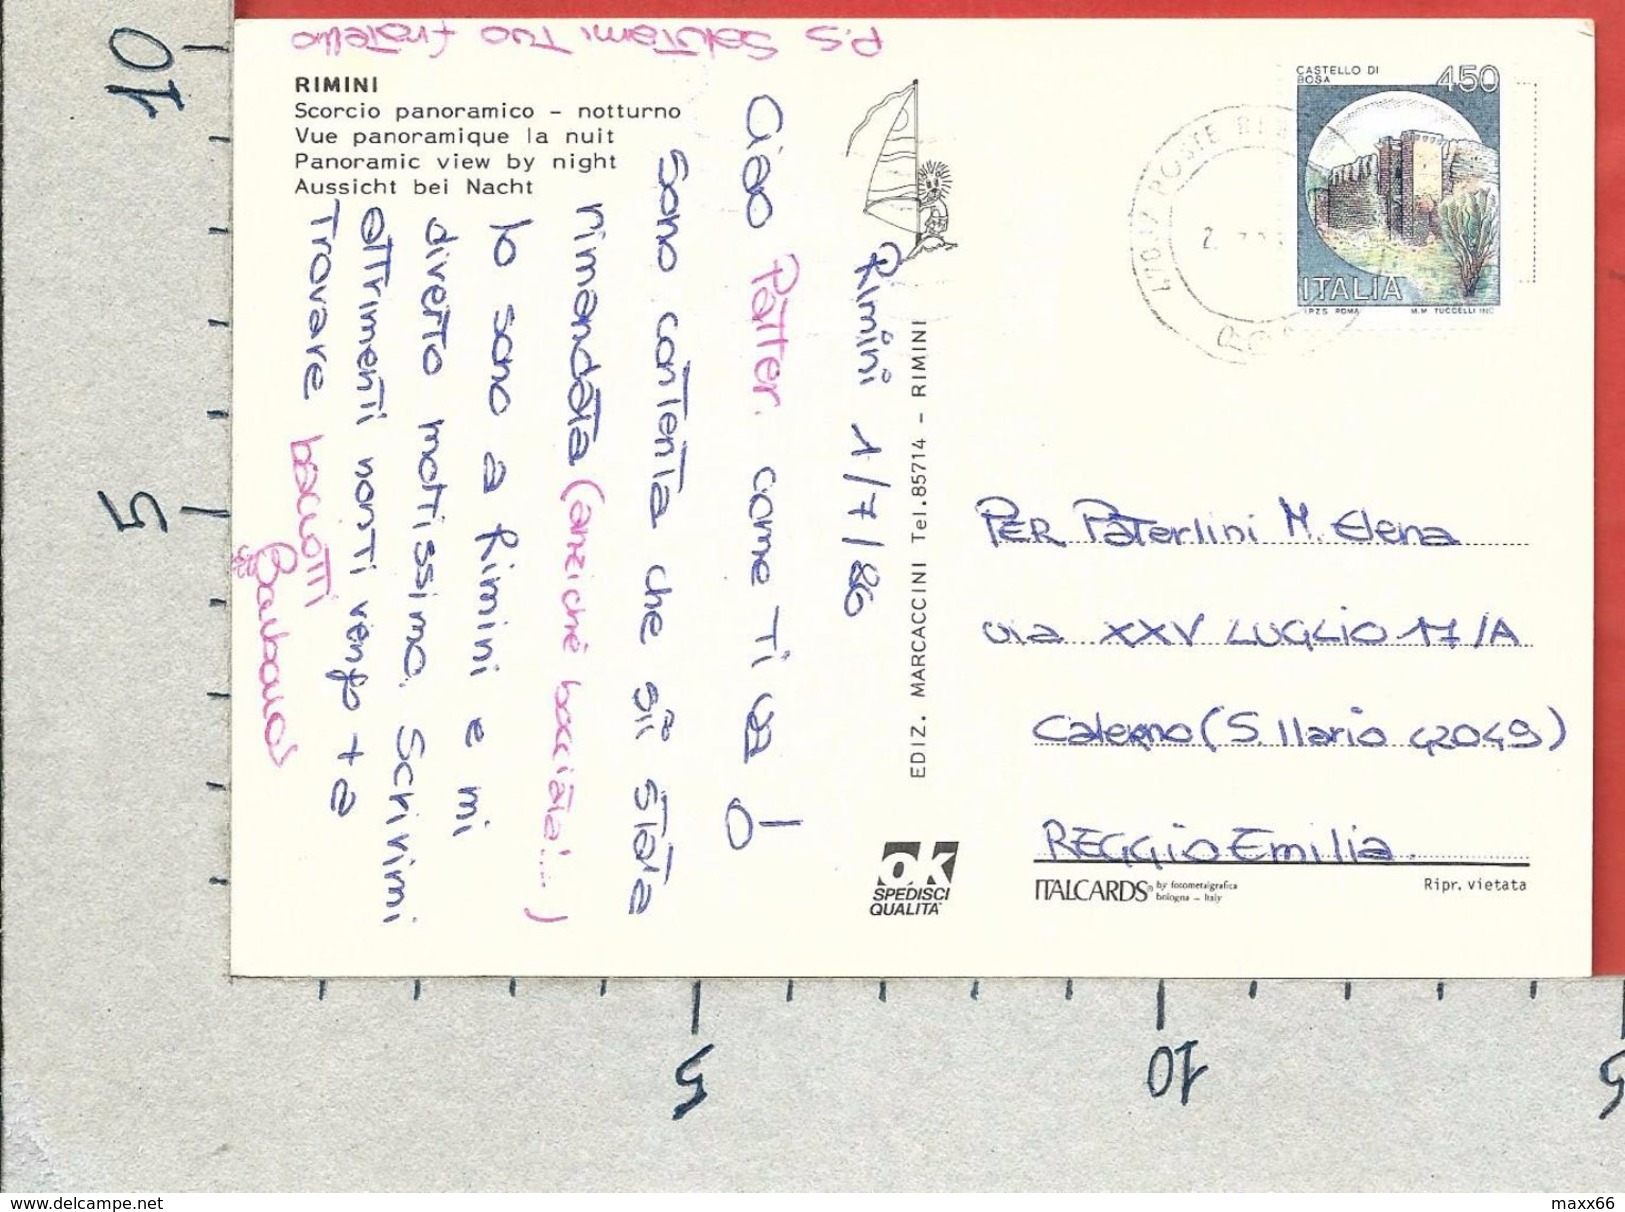 P.S Salutami tuo fratello
RIMINI
Scorcio panoramico - notturno
Vue panoramique la nuit
Panoramic view by night
Aussicht bei Nacht
Rimini 1/7/86
Ciao Patter. come Ti va?
Sono contenta che sii stata
rimandata (anziché bocciata!...)
Io sono a Rimini e mi
diverto moltissimo. Scrivimi
altrimenti non ti vengo + a
Trovare baciotti
Barbara
EDIZ. MARCACCINI Tel.85714 - RIMINI
OK
SPEDISCI
QUALITA'
CASTELLO DI
BOSA
450
ITALIA
I.P.Z.S. ROMA
M.M. TUCCELLI INC.
PER Paterlini M. Elena
via XXV LUGLIO 17/A
Calerno (S. Ilario 42049)
REGGIO Emilia
ITALCARDS® by fotometalgrafica
bologna - Italy
Ripr. vietata
10
5
5
10
5
www.delcampe.net
maxx66